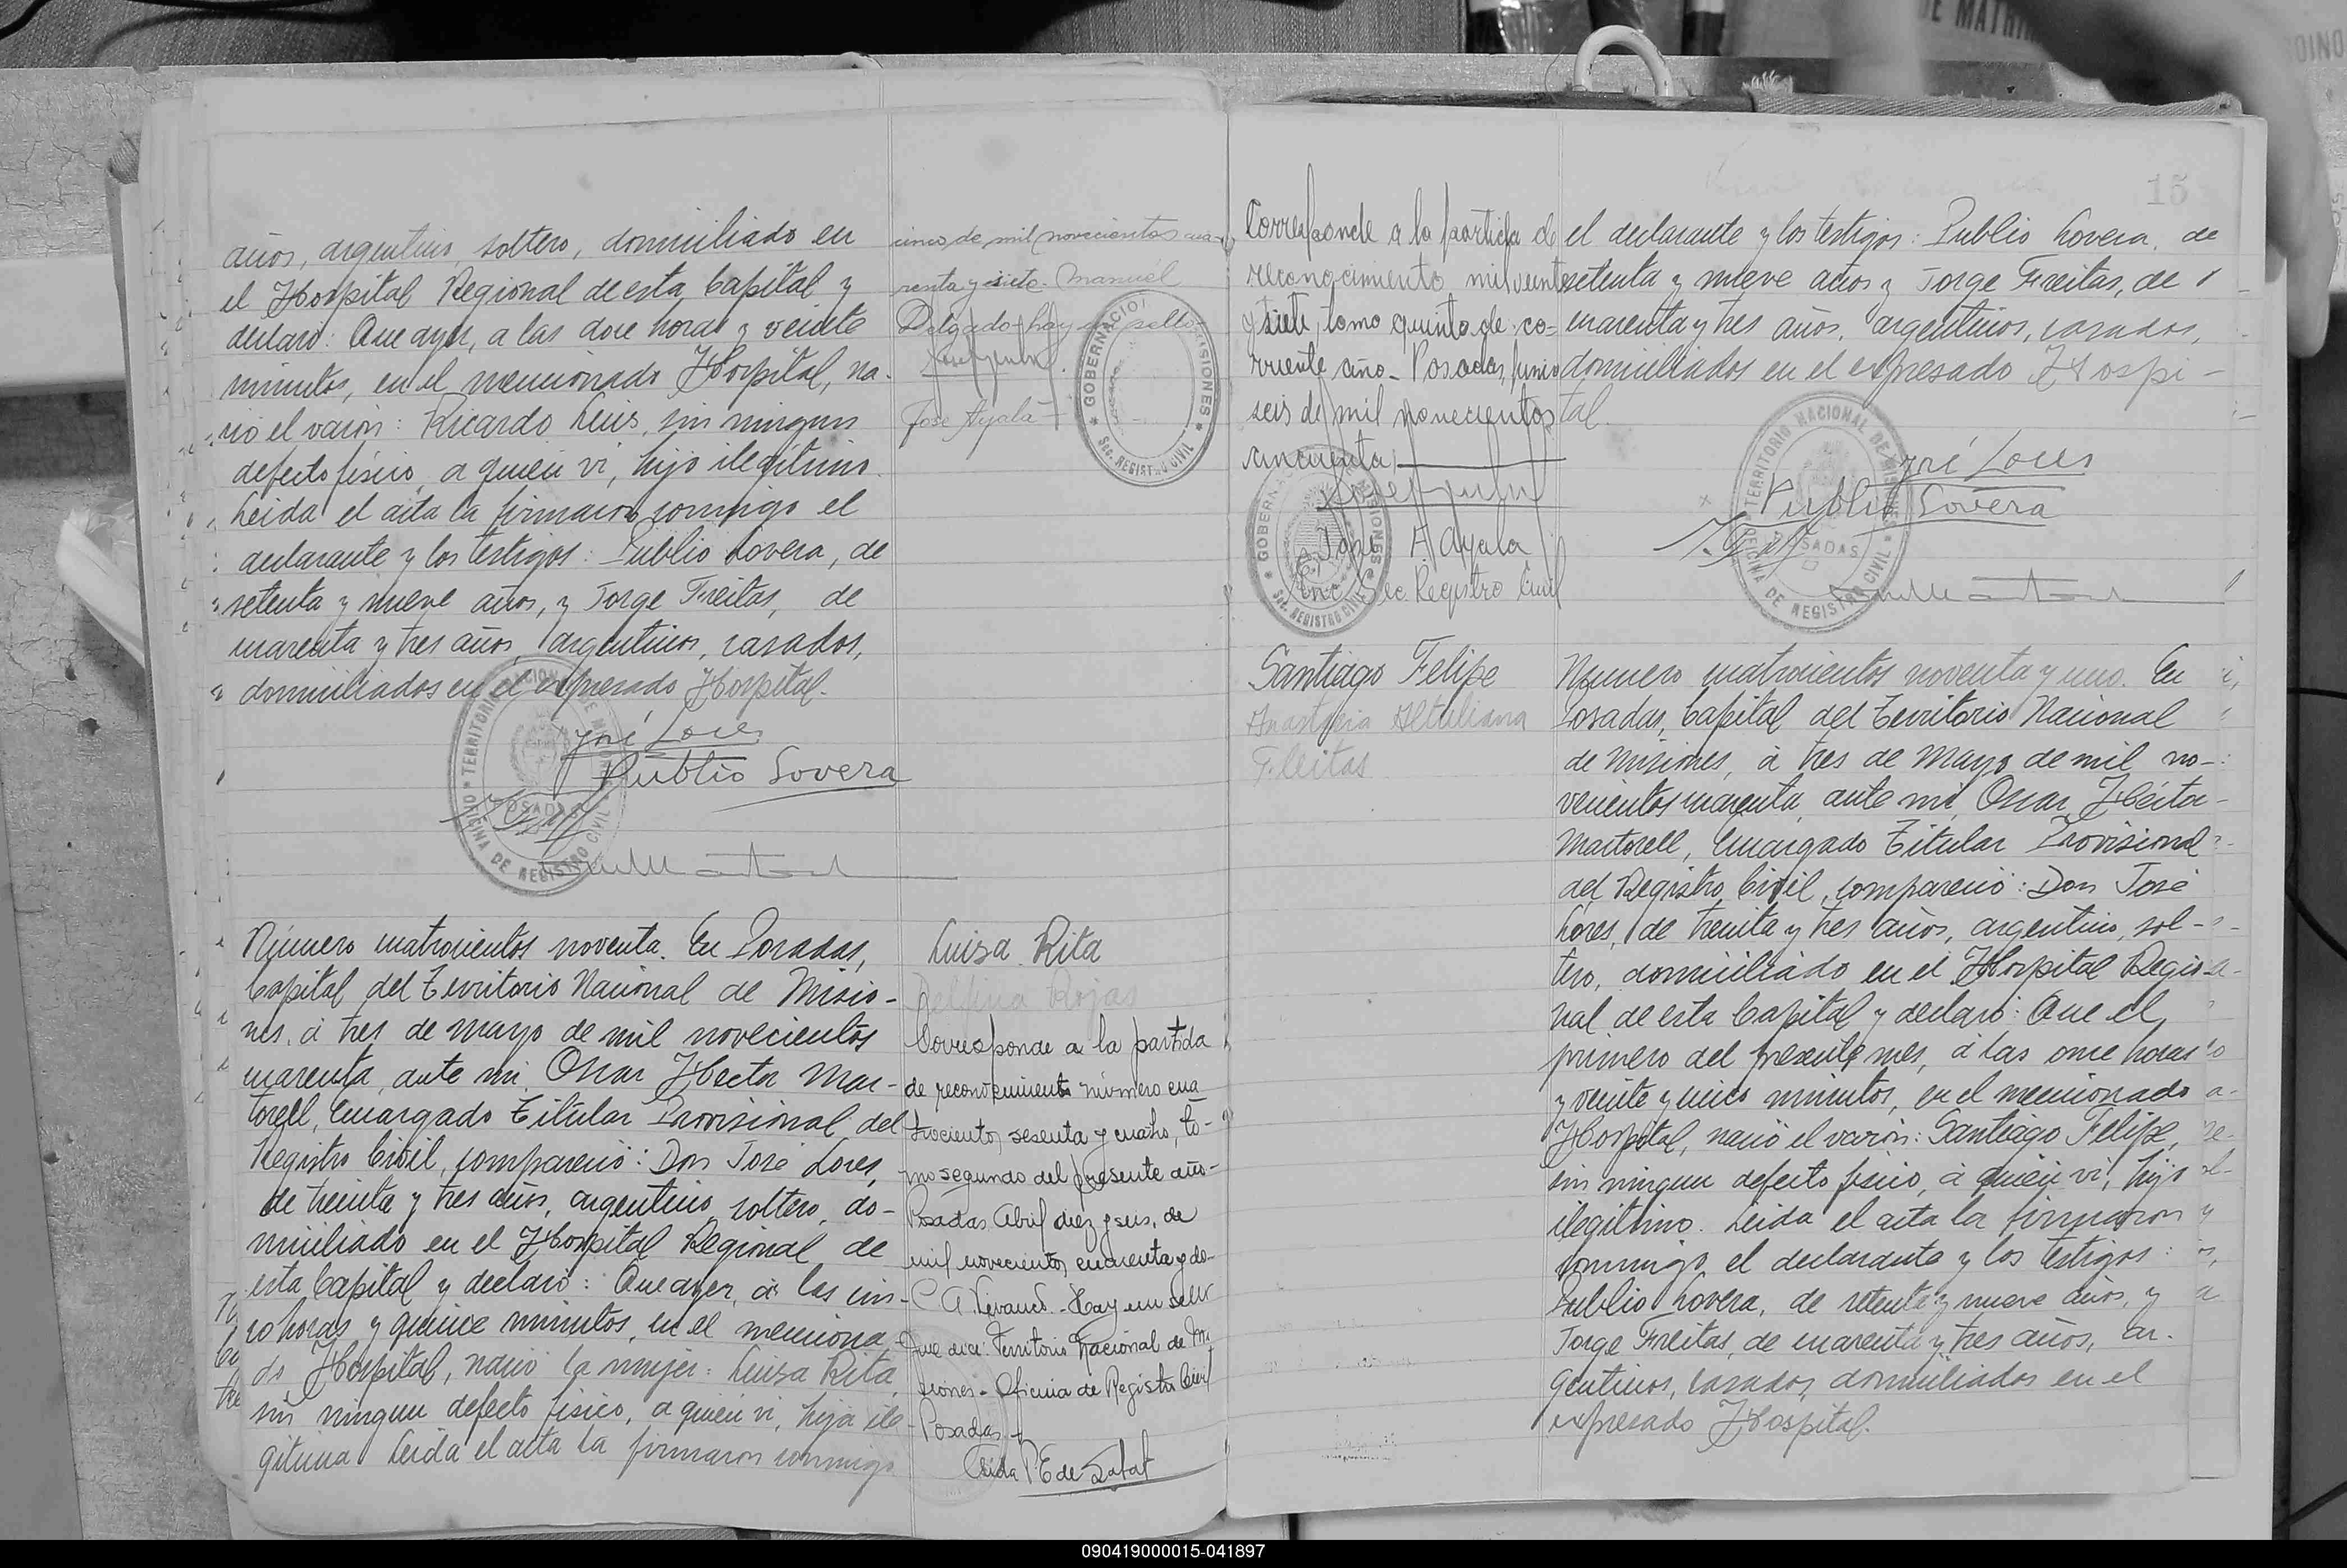 años, argentino, soltero, domiciliado en
el Hospital Regional de esta Capital y
declaro: Que ayer, a las doce horas y veinte
minutos, en el mencionado Hospital, na-
ció el varón: Ricardo Luis, sin ningun
defecto físico, a quien vi, hijo ilegítimo.
Leida el acta la firmaron conmigo el
declarante y los testigos: Publio Lovera, de
setenta y nueve años, y Jorge Freitas, de
cuarenta y tres años, argentinos, casados,
domiciliados en el expresado Hospital.
José Lores
Publio Lovera
TERRITORIO NACIONAL DE MISIONES
POSADAS
OFICINA DE REGISTRO CIVIL
cinco de mil novecientos cua-
renta y siete. Manuel
Delgado - hay un sello
José Ayala
GOBERNACION MISIONES
Sec. REGISTRO CIVIL
Número cuatrocientos noventa. En Posadas,
Capital del Territorio Nacional de Misio-
nes, á tres de mayo de mil novecientos
cuarenta, ante mi, Oscar Hector Mar-
torell, Encargado Titular Provisional del
Registro Civil, compareció: Don José Lores,
de treinta y tres años, argentino, soltero, do-
miciliado en el Hospital Regional de
esta Capital y declaró: Que ayer, á las cin-
co horas y quince minutos, en el menciona-
do Hospital, nació la mujer: Luisa Rita,
sin ningun defecto físico, a quien vi, hija ile-
gitima. Leida el acta la firmaron conmigo
Luisa Rita
Delfina Rojas
Corresponde a la partida
de reconocimiento número cua
trocientos sesenta y cuatro, to-
mo segundo del presente año-
Posadas Abril diez y seis, de
mil novecientos cuarenta y do-
Hay un sello
que dice: Territorio Nacional de Mi
siones - Oficina de Registro Civil
Posadas
15
Corresponde a la partida de
reconocimiento mil veinti
y siete, tomo quinto de co-
rriente año - Posadas, junio
seis de mil novecientos
cincuenta
José A. Ayala
Enc. Sec. Registro Civil
GOBERNACION MISIONES
Sec. REGISTRO CIVIL
el declarante y los testigos: Publio Lovera, de
setenta y nueve años y Jorge Freitas, de
cuarenta y tres años, argentinos, casados,
domiciliados en el expresado Hospi-
tal.
José Lores
Publio Lovera
TERRITORIO NACIONAL DE MISIONES
POSADAS
OFICINA DE REGISTRO CIVIL
Santiago Felipe
Fleitas
Número cuatrocientos noventa y uno. En
Posadas, Capital del Territorio Nacional
de Misiones, á tres de Mayo de mil no-
vecientos cuarenta, ante mi, Oscar Héctor
Martorell, Encargado Titular Provisional
del Registro Civil, compareció: Don José
Lores, de treinta y tres años, argentino, sol-
tero, domiciliado en el Hospital Regio-
nal de esta Capital y declaró: Que el
primero del presente mes, á las once horas
y veinte y cinco minutos, en el mencionado
Hospital, nació el varón: Santiago Felipe,
sin ningun defecto físico, á quien vi, hijo
ilegítimo. Leida el acta la firmaron
conmigo el declarante y los testigos:
Publio Lovera, de setenta y nueve años, y
Jorge Freitas, de cuarenta y tres años, ar-
gentinos, casados, domiciliados en el
expresado Hospital.
090419000015-041897